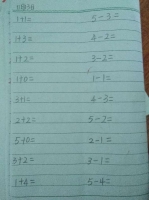 1+1= 5-3=
1+3= 3-2=
1+2= 3-2=
1+0= 1-1=
3+1= 4-3=
2+2= 5-2=
5+0= 2-1=
3+2= 3-1=
1+4= 5-4=